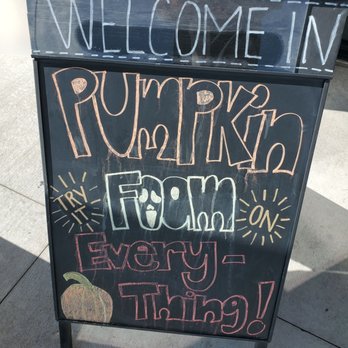 WELCOME IN
PUmPKin
TRY IT Foam ON
Every-
Thing!